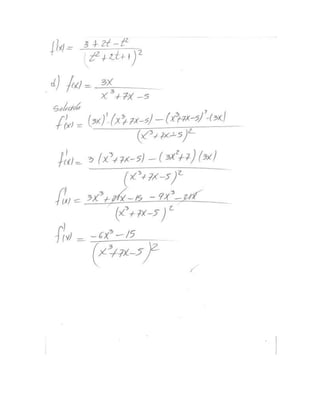 f'(x) = 3 + 2t - t² / (t² + 2t + 1)²
d) f(x) = 3x / x³ + 7x - 5
f'(x) = (3x)' (x³ + 7x - 5) - (x³ + 7x - 5)' - (3x) / (x³ + 7x - 5)²
f'(x) = 3 (x³ + 7x - 5) - (3x² + 7) (3x) / (x³ + 7x - 5)²
f'(x) = 3x³ + 21x - 15 - 9x³ - 21x / (x³ + 7x - 5)²
f'(x) = -6x³ - 15 / (x³ + 7x - 5)²